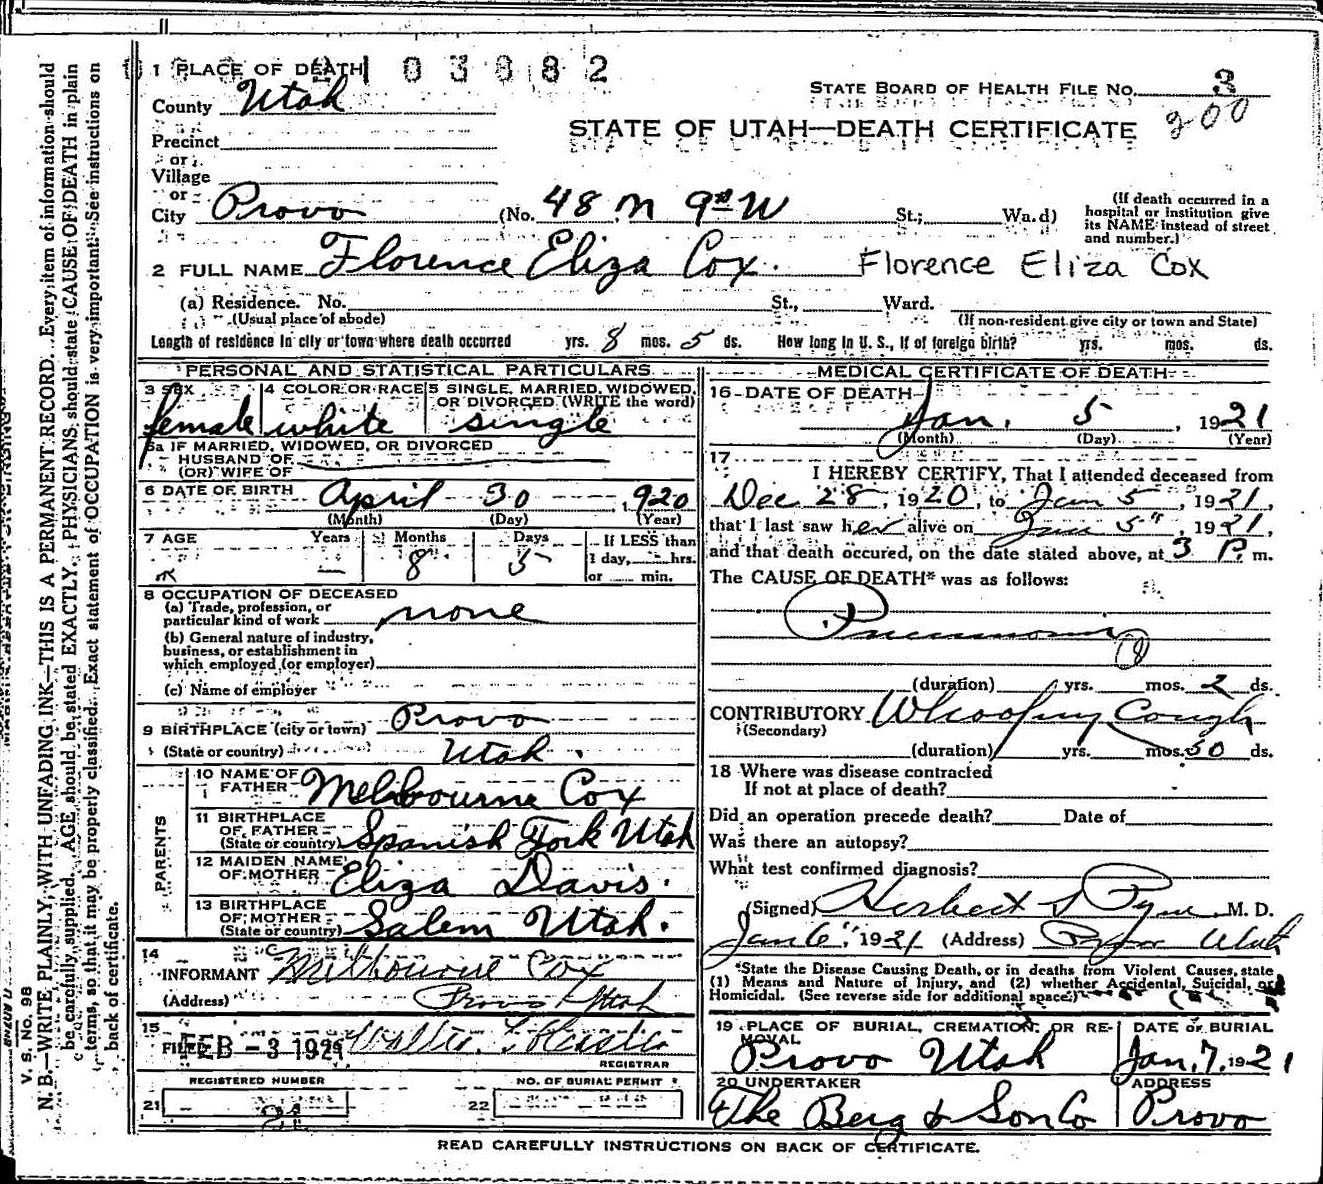 1 PLACE OF DEATH 03882
County Utah
Precinct
or
Village
or
City Provo (No. 48 N 9th W St.; Ward)
STATE BOARD OF HEALTH FILE NO. 3
200
STATE OF UTAH—DEATH CERTIFICATE
(If death occurred in a
hospital or institution give
its NAME instead of street
and number.)
2 FULL NAME Florence Eliza Cox. Florence Eliza Cox
(a) Residence. No. St., Ward.
(Usual place of abode) (If non-resident give city or town and State)
Length of residence in city or town where death occurred yrs. 8 mos. 5 ds. How long in U. S., if of foreign birth? yrs. mos. ds.
PERSONAL AND STATISTICAL PARTICULARS
3 SEX 4 COLOR OR RACE 5 SINGLE, MARRIED, WIDOWED,
OR DIVORCED (WRITE the word)
female white single
5a IF MARRIED, WIDOWED, OR DIVORCED
HUSBAND OF
(OR) WIFE OF
6 DATE OF BIRTH April 30 1920
(Month) (Day) (Year)
7 AGE Years Months Days If LESS than
— 8 5 1 day, hrs.
or min.
8 OCCUPATION OF DECEASED
(a) Trade, profession, or
particular kind of work none
(b) General nature of industry,
business, or establishment in
which employed (or employer)
(c) Name of employer
9 BIRTHPLACE (city or town) Provo
(State or country) Utah.
PARENTS
10 NAME OF
FATHER Melbourne Cox
11 BIRTHPLACE
OF FATHER
(State or country) Spanish Fork Utah
12 MAIDEN NAME
OF MOTHER Eliza Davis.
13 BIRTHPLACE
OF MOTHER
(State or country) Salem Utah.
14
INFORMANT Melbourne Cox
(Address) Provo Utah
15
FILED FEB -3 1921
REGISTRAR
REGISTERED NUMBER NO. OF BURIAL PERMIT
21 21 22
MEDICAL CERTIFICATE OF DEATH
16 DATE OF DEATH
Jan. 5, 1921
(Month) (Day) (Year)
17
I HEREBY CERTIFY, That I attended deceased from
Dec 28, 1920, to Jan 5, 1921,
that I last saw her alive on Jan 5", 1921,
and that death occured, on the date stated above, at 3 P. m.
The CAUSE OF DEATH* was as follows:
Pneumonia
(duration) yrs. mos. 2 ds.
CONTRIBUTORY Whooping Cough
(Secondary)
(duration) yrs. mos. 30 ds.
18 Where was disease contracted
If not at place of death?
Did an operation precede death? Date of
Was there an autopsy?
What test confirmed diagnosis?
(Signed) Herbert S Pyne, M. D.
Jan 6, 1921 (Address) Provo Utah
*State the Disease Causing Death, or in deaths from Violent Causes, state
(1) Means and Nature of Injury, and (2) whether Accidental, Suicidal, or
Homicidal. (See reverse side for additional space.)
19 PLACE OF BURIAL, CREMATION, OR RE-
MOVAL DATE OF BURIAL
Provo Utah Jan. 7, 1921
20 UNDERTAKER ADDRESS
The Berg & Son Co Provo
READ CAREFULLY INSTRUCTIONS ON BACK OF CERTIFICATE.
V. S. No. 98
N. B.—WRITE PLAINLY, WITH UNFADING INK—THIS IS A PERMANENT RECORD. Every item of information should
be carefully supplied. AGE should be stated EXACTLY. PHYSICIANS should state CAUSE OF DEATH in plain
terms, so that it may be properly classified. Exact statement of OCCUPATION is very important. See instructions on
back of certificate.